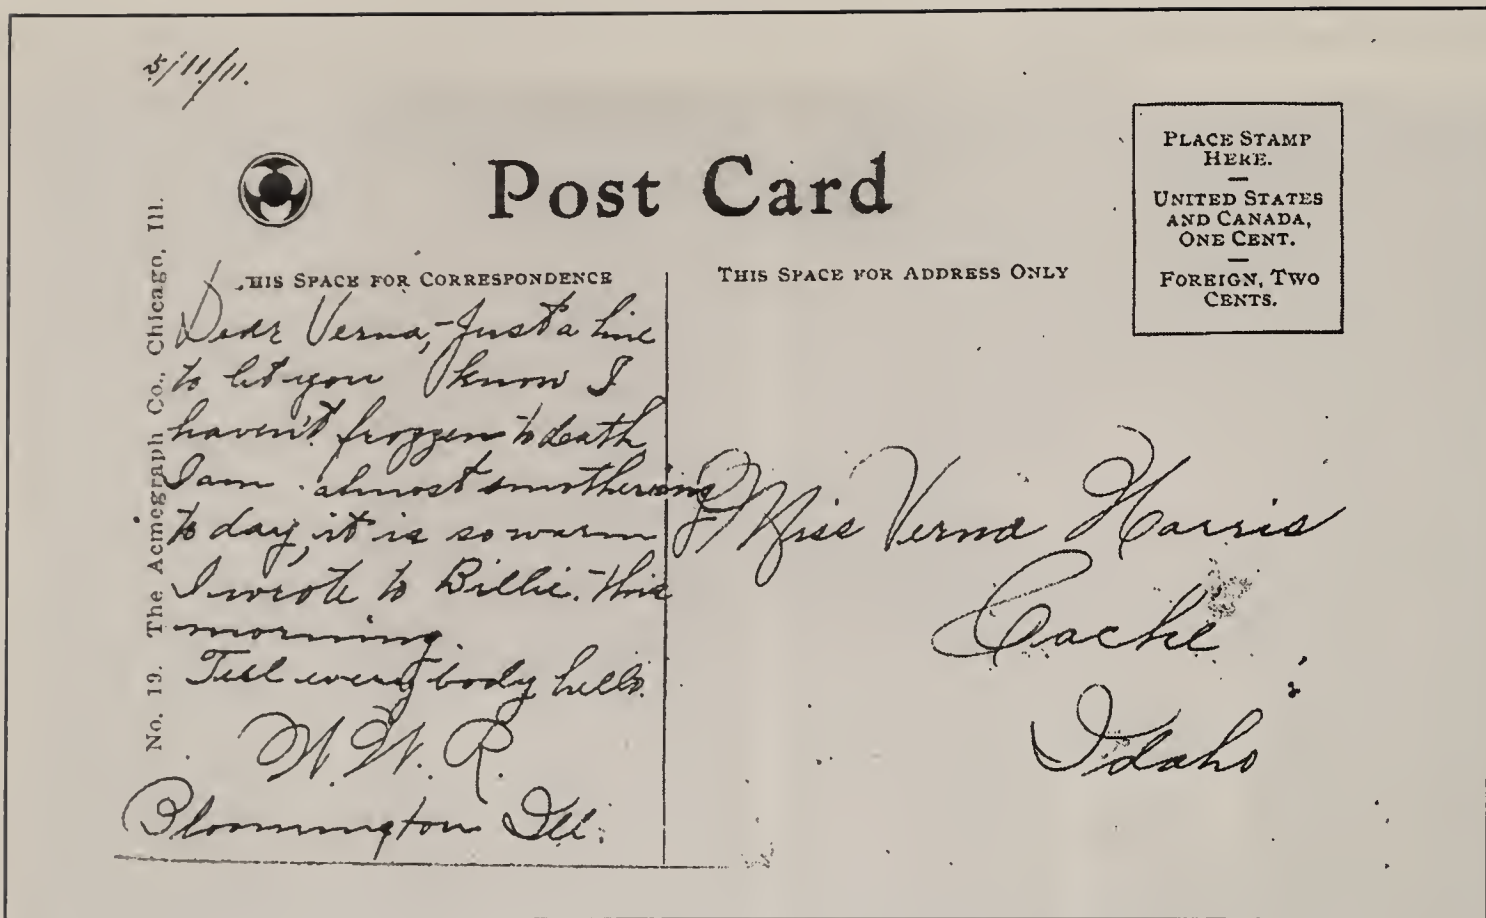 5/11/11.
Post Card
PLACE STAMP
HERE.
UNITED STATES
AND CANADA,
ONE CENT.
FOREIGN, TWO
CENTS.
THIS SPACE FOR CORRESPONDENCE
THIS SPACE FOR ADDRESS ONLY
No. 19. The Acmegraph Co., Chicago, Ill.
Dear Verna,- Just a line
to let you know I
haven't frozzen to death
I am almost smothering
to day, it is so warm
I wrote to Billie this
morning.
Tell every body hello.
W. R.
Bloomington Ill.
Miss Verna Harris
Cache
Idaho